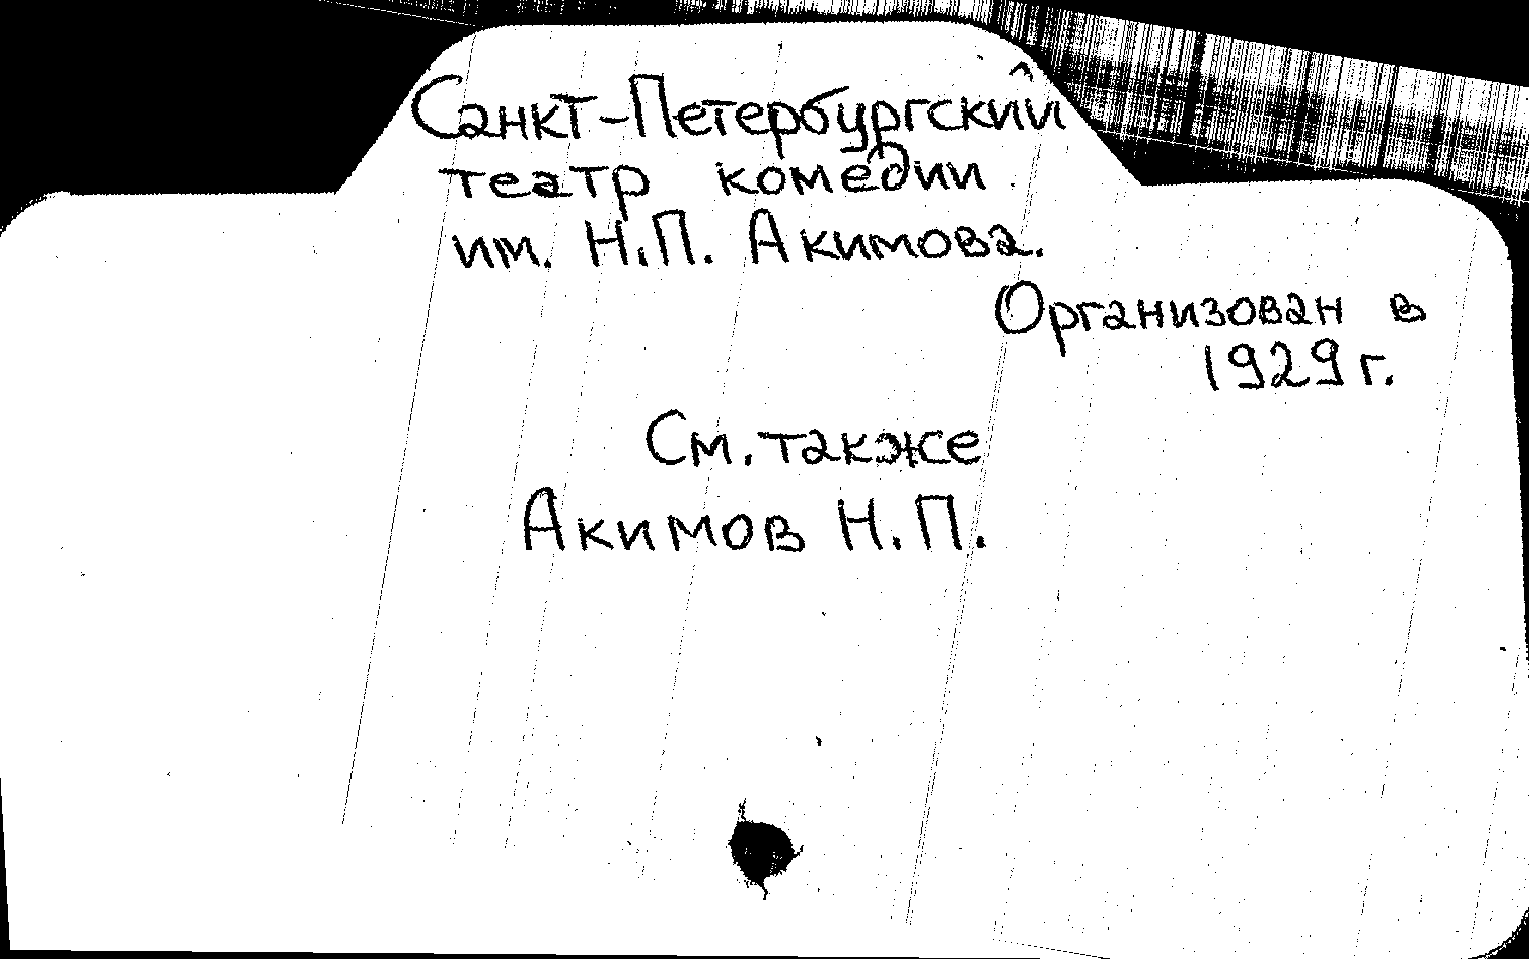 Санкт-Петербургский
театр комедии
им. Н.П. Акимова.
Организован в
1929 г.
См. также
Акимов Н.П.